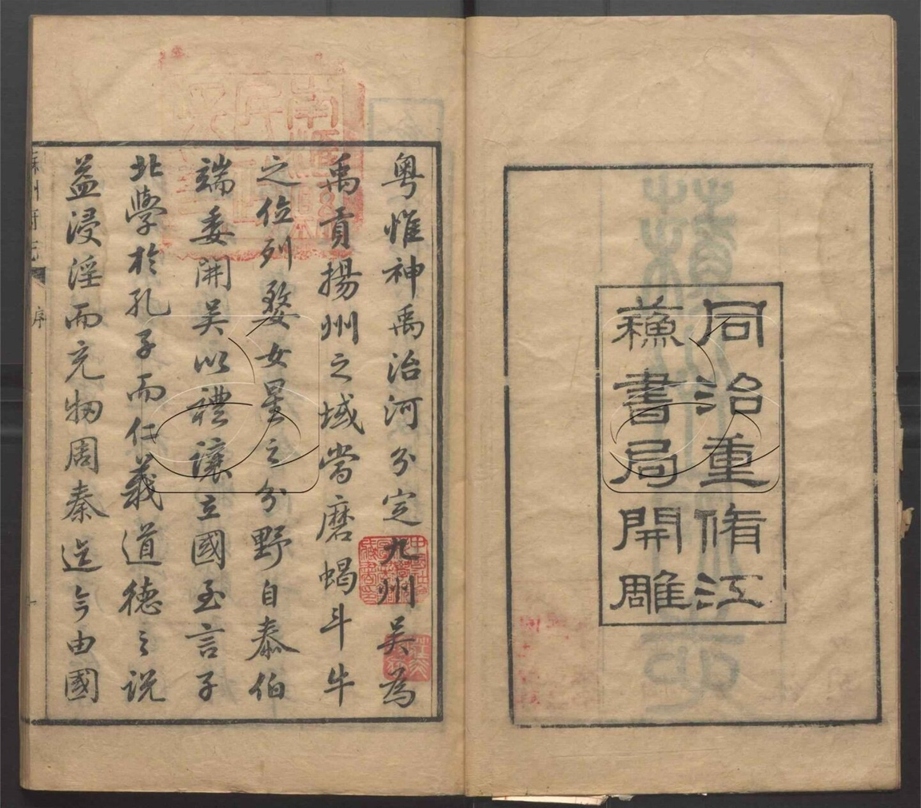 同治重脩江
蘇書局開雕
粵惟神禹治河分定九州吳為
禹貢揚州之域當磨蝎斗牛
之位列婺女星之分野自泰伯
端委開吳以禮讓立國至言子
北學於孔子而仁義道德之說
益浸淫而充牣周秦迄今由國
序